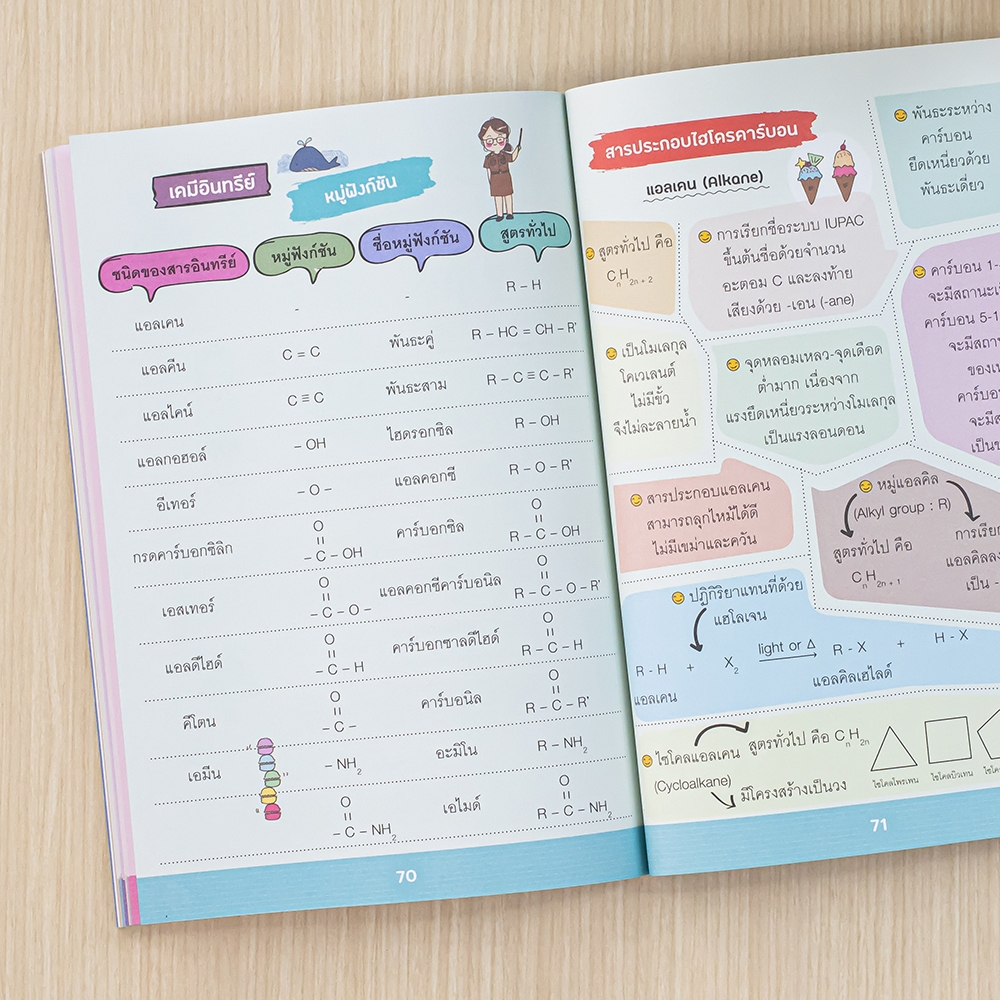 เคมีอินทรีย์
หมู่ฟังก์ชัน
ชนิดของสารอินทรีย์ หมู่ฟังก์ชัน ชื่อหมู่ฟังก์ชัน สูตรทั่วไป
แอลเคน - - R – H
แอลคีน C = C พันธะคู่ R – HC = CH – R'
แอลไคน์ C ≡ C พันธะสาม R – C ≡ C – R'
แอลกอฮอล์ – OH ไฮดรอกซิล R – OH
อีเทอร์ – O – แอลคอกซี R – O – R'
O O
กรดคาร์บอกซิลิก – C – OH คาร์บอกซิล R – C – OH
O O
เอสเทอร์ – C – O – แอลคอกซีคาร์บอนิล R – C – O – R'
O O
แอลดีไฮด์ – C – H คาร์บอกซาลดีไฮด์ R – C – H
O O
คีโตน – C – คาร์บอนิล R – C – R'
เอมีน – NH2 อะมิโน R – NH2
O O
– C – NH2 เอไมด์ R – C – NH2
70
สารประกอบไฮโดรคาร์บอน
แอลเคน (Alkane)
พันธะระหว่าง
คาร์บอน
ยึดเหนี่ยวด้วย
พันธะเดี่ยว
สูตรทั่วไป คือ
CnH2n + 2
การเรียกชื่อระบบ IUPAC
ขึ้นต้นชื่อด้วยจำนวน
อะตอม C และลงท้าย
เสียงด้วย -เอน (-ane)
คาร์บอน 1-
จะมีสถานะเ
คาร์บอน 5-1
จะมีสถาน
ของเ
คาร์บอ
จะมีส
เป็นข
เป็นโมเลกุล
โคเวเลนต์
ไม่มีขั้ว
จึงไม่ละลายน้ำ
จุดหลอมเหลว-จุดเดือด
ต่ำมาก เนื่องจาก
แรงยึดเหนี่ยวระหว่างโมเลกุล
เป็นแรงลอนดอน
สารประกอบแอลเคน
สามารถลุกไหม้ได้ดี
ไม่มีเขม่าและควัน
หมู่แอลคิล
(Alkyl group : R)
สูตรทั่วไป คือ
CnH2n + 1
การเรีย
แอลคิลล
เป็น -
ปฏิกิริยาแทนที่ด้วย
แฮโลเจน
R - H + X2 light or Δ R - X + H - X
แอลเคน แอลคิลเฮไลด์
ไซโคลแอลเคน สูตรทั่วไป คือ CnH2n
(Cycloalkane)
มีโครงสร้างเป็นวง
ไซโคลโพรเพน ไซโคลบิวเทน ไซโค
71